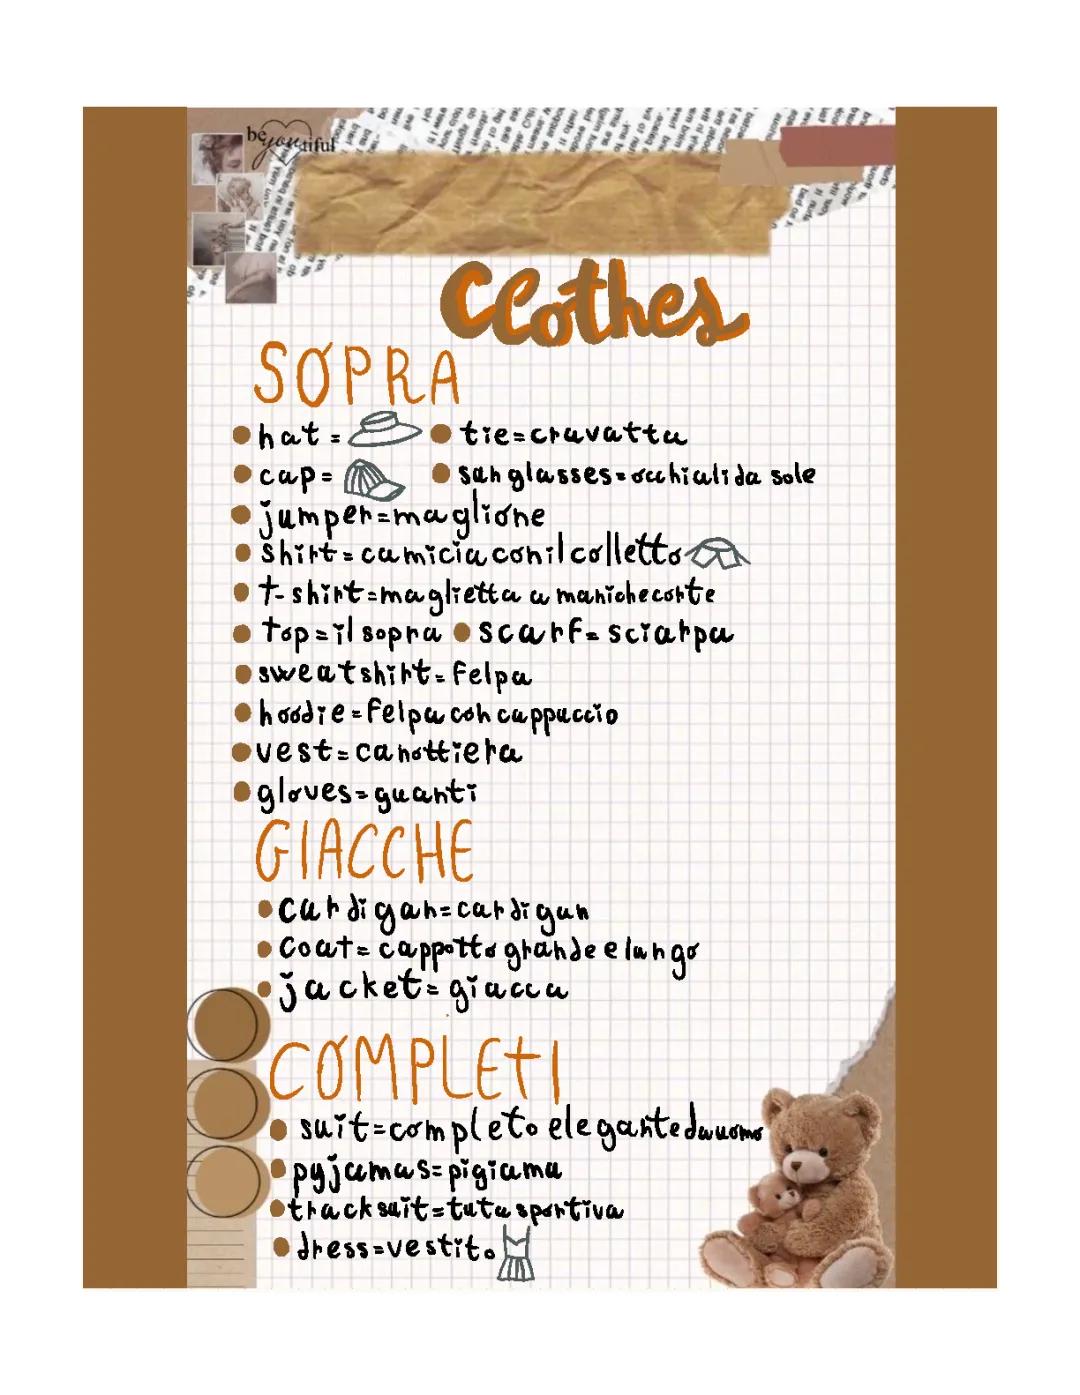 beyoutiful
Clothes
SOPRA
hat = 
tie=cravatta
cap=
sunglasses=occhiali da sole
jumper=maglione
shirt=camicia con il colletto
t-shirt=maglietta a maniche corte
top=il sopra
scarf=sciarpa
sweatshirt=felpa
hoodie=felpa con cappuccio
vest=canottiera
gloves=guanti
GIACCHE
cardigan=cardigan
coat=cappotto grande e lungo
jacket=giacca
COMPLETI
suit=completo elegante da uomo
pyjamas=pigiama
tracksuit=tuta sportiva
dress=vestito